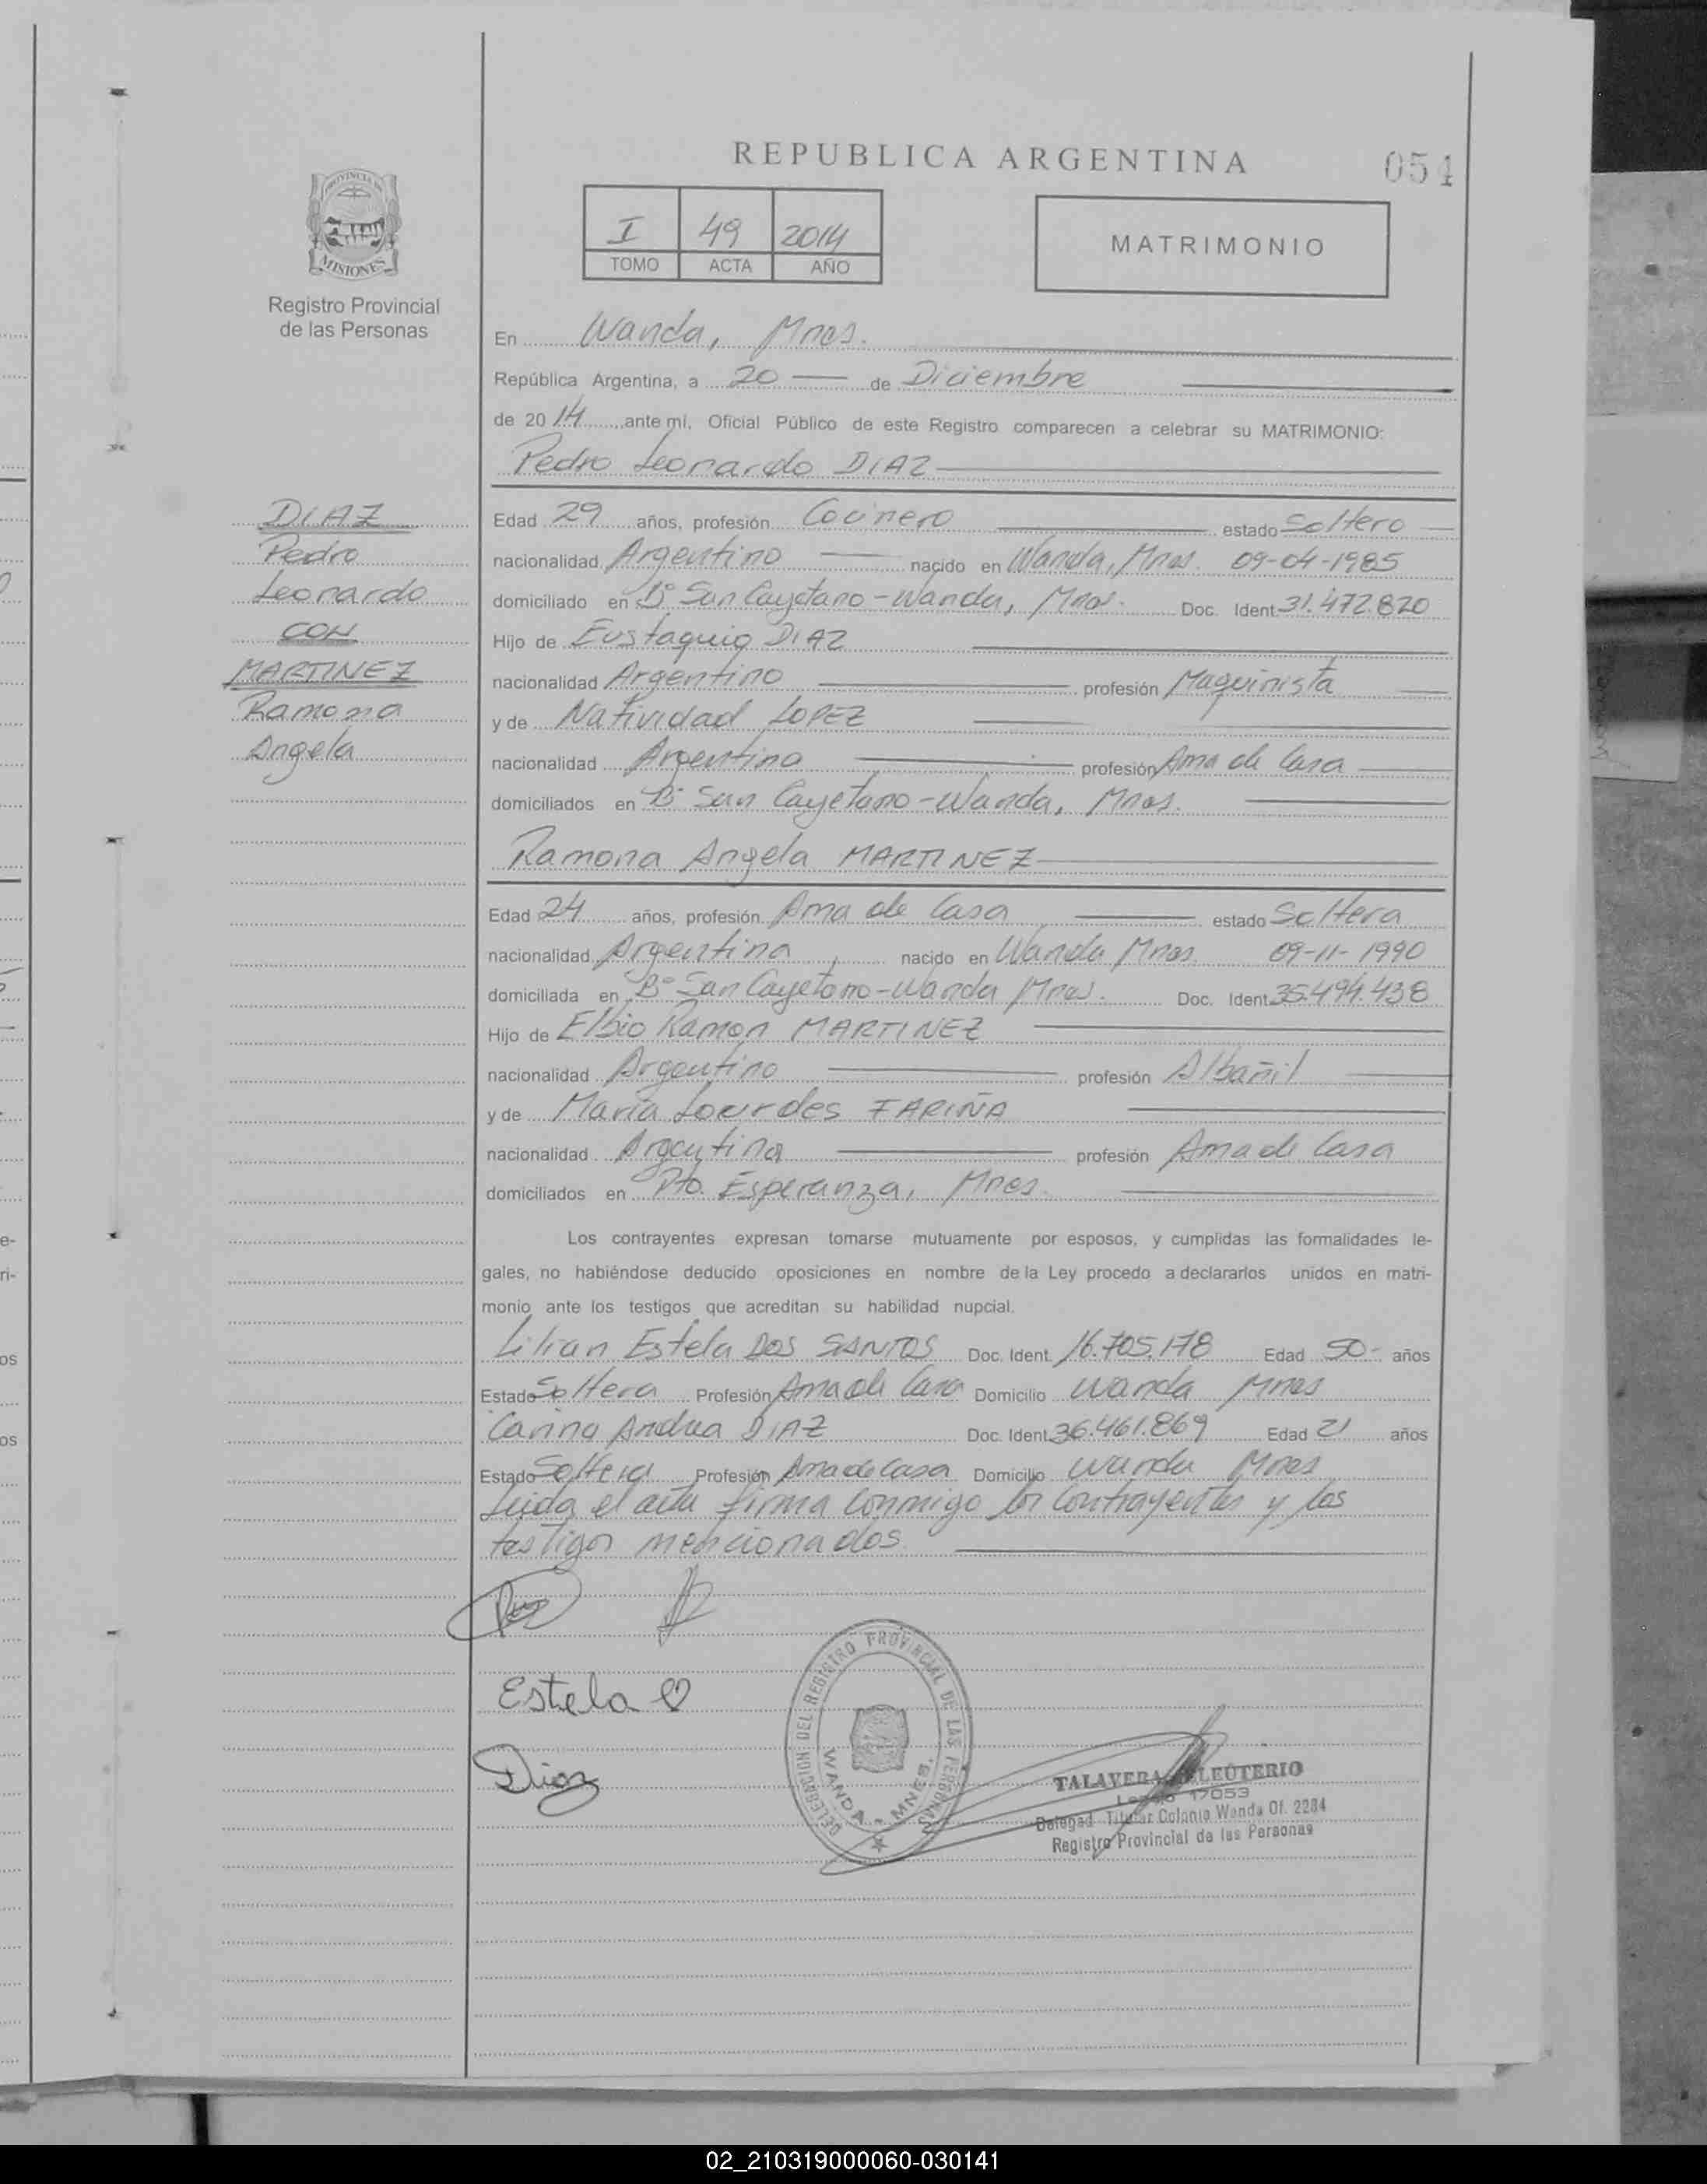 REPUBLICA ARGENTINA
054
PROVINCIA DE
MISIONES
Registro Provincial
de las Personas
I 49 2014
TOMO ACTA AÑO
MATRIMONIO
En Wanda, Mnes.
República Argentina, a 20 de Diciembre
de 2014 ante mi, Oficial Público de este Registro comparecen a celebrar su MATRIMONIO:
Pedro Leonardo DIAZ
DIAZ
Pedro
Leonardo
CON
MARTINEZ
Ramona
Angela
Edad 29 años, profesión Cocinero estado Soltero
nacionalidad Argentino nacido en Wanda, Mnes. 09-04-1985
domiciliado en B° San Cayetano - Wanda, Mnes. Doc. Ident 31.472.820
Hijo de Eustaquio DIAZ
nacionalidad Argentino profesión Maquinista
y de Natividad LOPEZ
nacionalidad Argentina profesión Ama de Casa
domiciliados en B° San Cayetano - Wanda, Mnes.
Ramona Angela MARTINEZ
Edad 24 años, profesión Ama de Casa estado Soltera
nacionalidad Argentina nacido en Wanda Mnes. 09-11-1990
domiciliada en B° San Cayetano - Wanda Mnes. Doc. Ident 35.494.438
Hijo de Elbio Ramon MARTINEZ
nacionalidad Argentino profesión Albañil
y de Maria Lourdes FARIÑA
nacionalidad Argentina profesión Ama de Casa
domiciliados en Pto. Esperanza, Mnes.
Los contrayentes expresan tomarse mutuamente por esposos, y cumplidas las formalidades le-
gales, no habiéndose deducido oposiciones en nombre de la Ley procedo a declararlos unidos en matri-
monio ante los testigos que acreditan su habilidad nupcial.
Lilian Estela DOS SANTOS Doc. Ident. 16.705.178 Edad 50- años
Estado Soltera Profesión Ama de Casa Domicilio Wanda Mnes
Carina Andrea DIAZ Doc. Ident. 36.461.869 Edad 21 años
Estado Soltera Profesión Ama de Casa Domicilio Wanda Mnes
Leida el acta firma conmigo los contrayentes y los
testigos mencionados.
Estela
Diaz
DELEGACION DEL REGISTRO PROVINCIAL DE LAS PERSONAS
WANDA - MNES.
TALAVERA ELEUTERIO
Legajo 17053
Delegad Titular Colonia Wanda Of. 2284
Registro Provincial de las Personas
e-
ri-
os
os
02_210319000060-030141